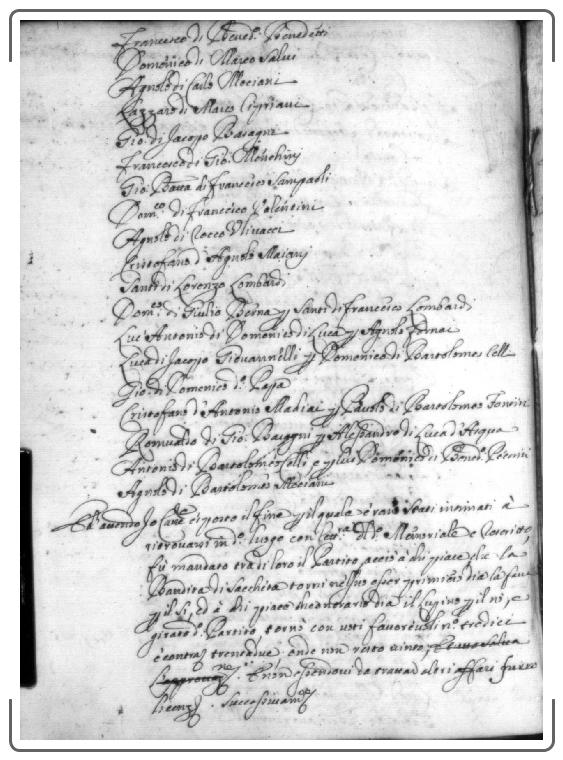 Francesco di Bened.º Benedetti
Domenico di Marco Salvi
Agnolo di Carlo Mociani
Lazzaro di Marco Cipriani
Gio: di Jacopo Baragni
Francesco di Gio: Menchinj
Gio: Batta di Francesco Sampaoli
Dom.co di Francesco Valentini
Agnolo di Rocco Ulivacci
Cristofano d'Agnolo Maianj
Santi di Lorenzo Lombardi
Dom.co di Giulio Berna p Santi di Francesco Lombardi
Luc'Antonio di Domenico di Luca p Agnolo
Luca di Jacopo Giovannelli p Domenico di Bartolomeo Celli
Gio: di Domenico d.º Papa
Cristofano d'Antonio Madiai p Pavolo di Bartolomeo
Romualdo di Gio: Baragni p Alessandro di Luca d'Acqua
Antonio di Bartolomeo Celli e p lui Domenico di Bened.º
Agnolo di Bartolomeo Mociani
Ed avendo Jo Canc.re esposto il fine p il quale erano stati intimati à
ritrovarsi in d.º luogo con lett.ra del d.º Memoriale e Rescritto
fù mandato tra di loro il Partito, acciò à chi piace che la
Bandita di Sacchita torni nell'esser primiero dia la fava
p il sì, ed à chi piace in contrario dia il lupino p il nò, e
girato d.º Partito, tornò con voti favorevoli n.º tredici
e contrarj trentadue onde non restò vinto,
E non essendovi da trattar altri affari furno
licenz.ti Successivam.te